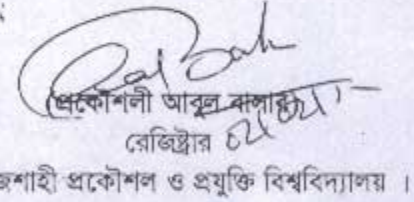 (প্রকৌশলী আবুল বাশার)
রেজিষ্ট্রার
জশাহী প্রকৌশল ও প্রযুক্তি বিশ্ববিদ্যালয় ।